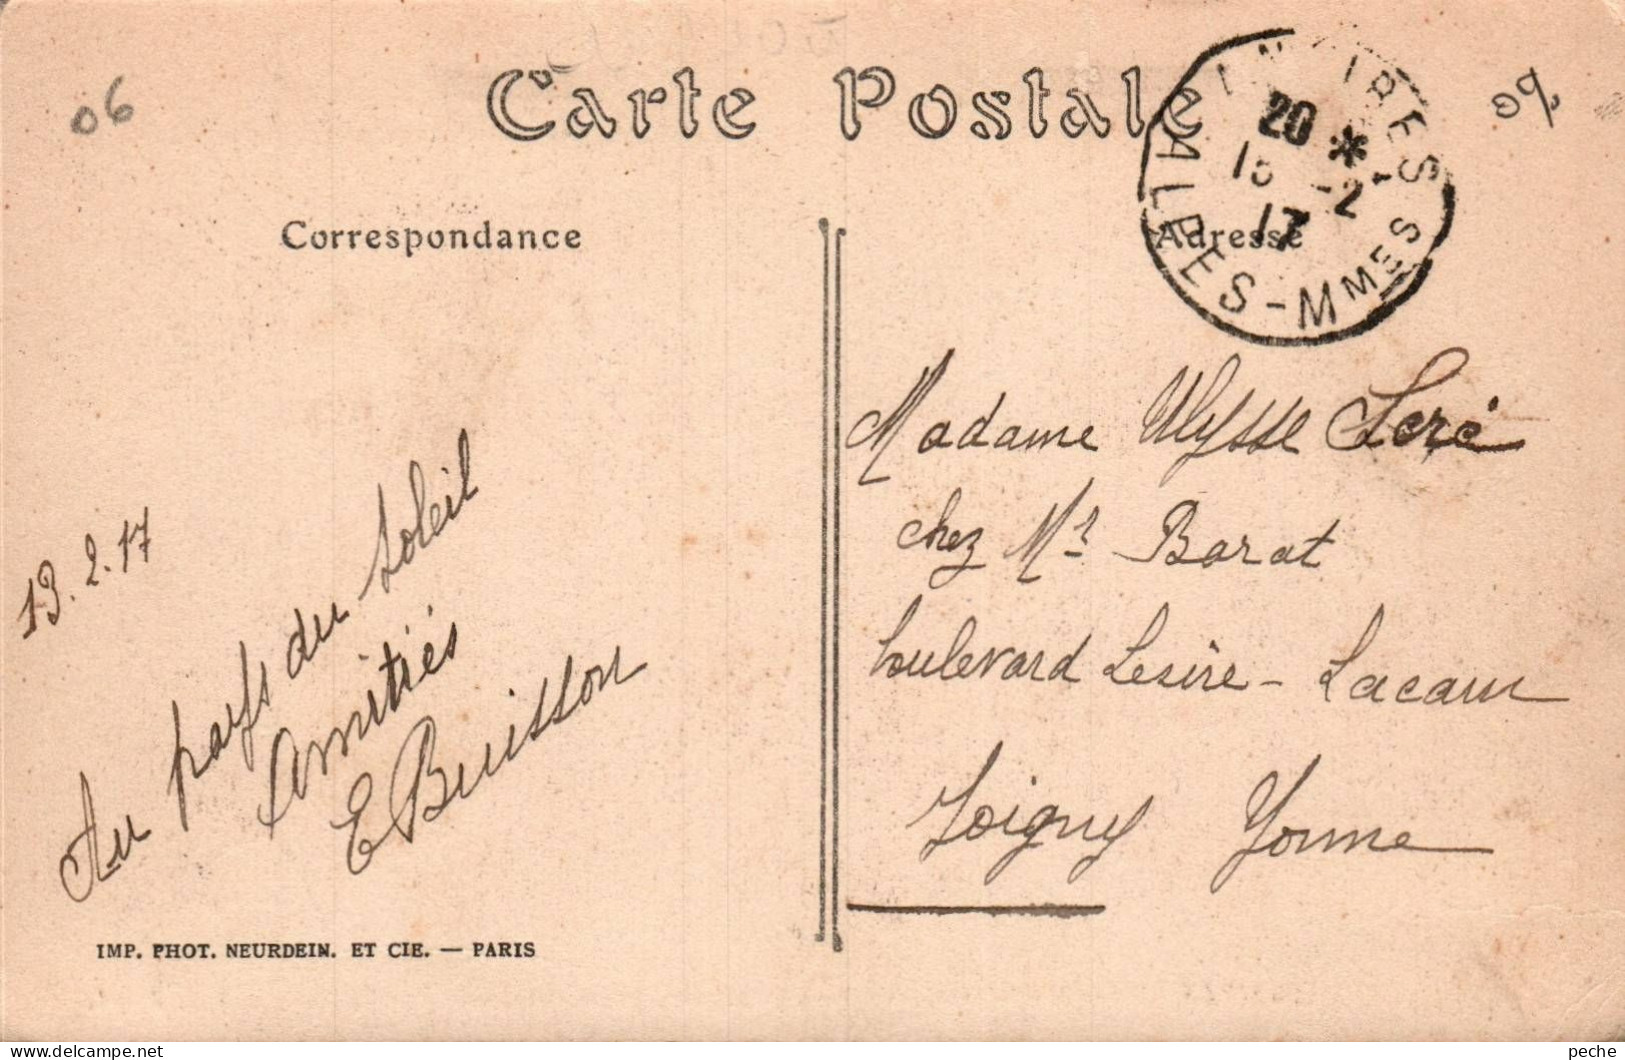 06
Carte Postale
20 *
13 -2
17
ALPES-MMES
Correspondance
Adresse
13.2.17
Au pays du soleil
Amitiés
E Buisson
Madame Ulysse Seré
chez Mr Barat
boulevard Lesire-Lacam
Joigny Yonne
IMP. PHOT. NEURDEIN. ET CIE. — PARIS
peche